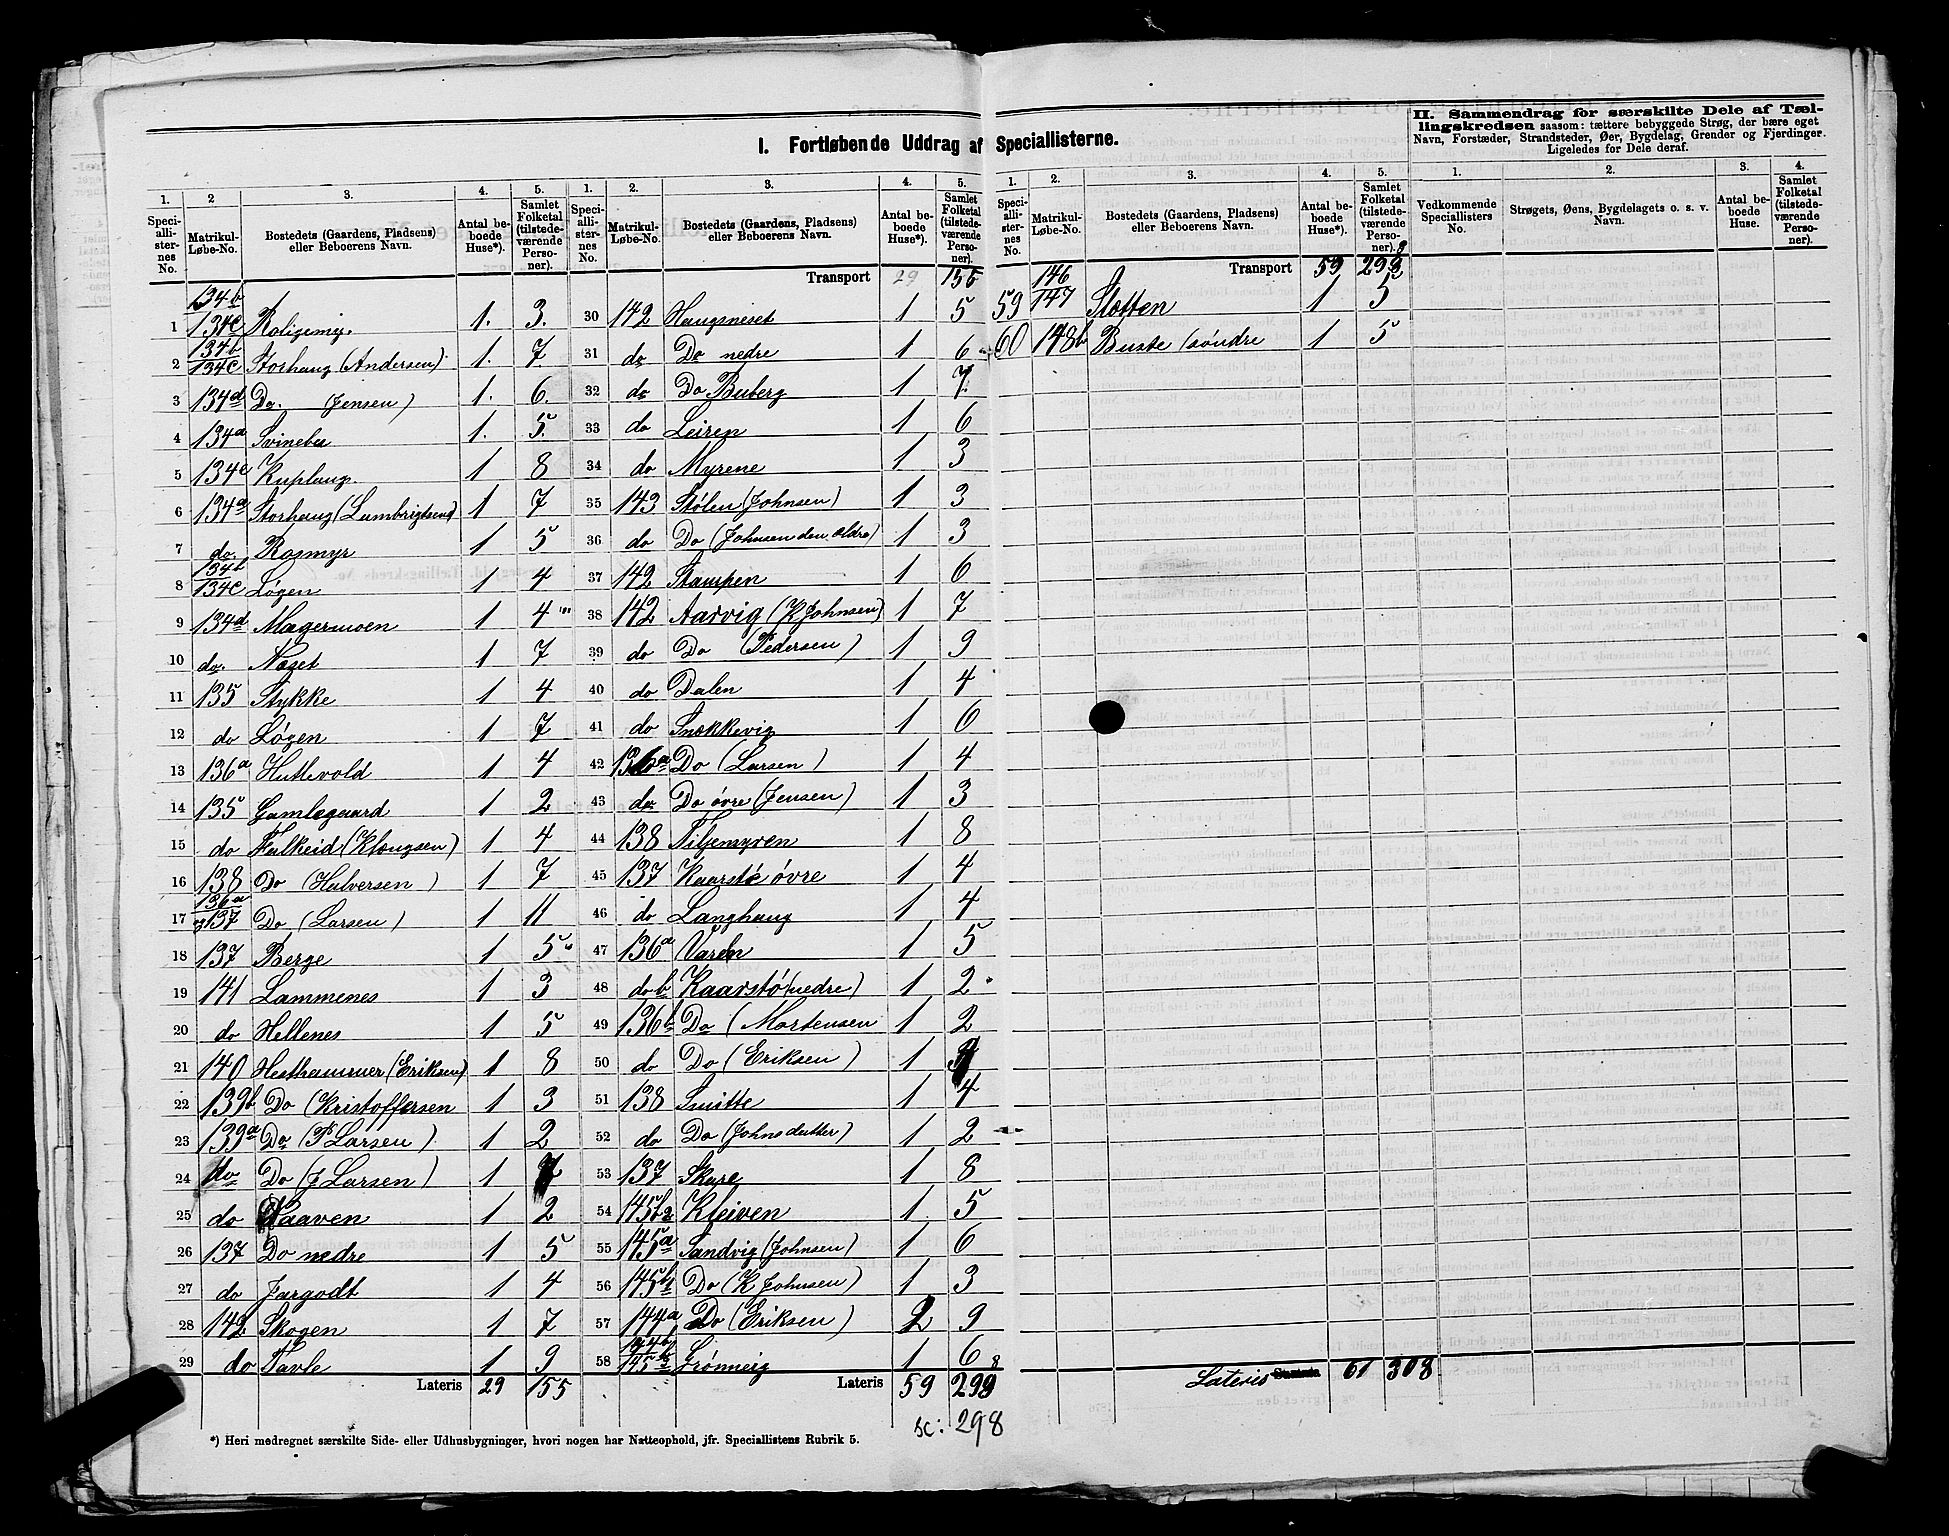 I. Fortløbende Uddrag af Speciallisterne.
II. Sammendrag for særskilte Dele af Tæl-
lingskredsen saasom: tættere bebyggede Strøg, der bære eget
Navn, Forstæder, Strandsteder, Øer, Bygdelag, Grender og Fjerdinger.
Ligeledes for Dele deraf.
1. 2 3. 4. 5. 1. 2. 3. 4. 5. 1. 2. 3. 4. 5. 1. 2. 3. 4.
Speciallisternes No. Matrikul-Løbe-No. Bostedets (Gaardens, Pladsens) eller Beboerens Navn. Antal beboede Huse*). Samlet Folketal (tilstedeværende Personer).
Speciallisternes No. Matrikul-Løbe-No. Bostedets (Gaardens, Pladsens) eller Beboerens Navn. Antal beboede Huse*). Samlet Folketal (tilstedeværende Personer).
Speciallisternes No. Matrikul-Løbe-No. Bostedets (Gaardens, Pladsens) eller Beboerens Navn. Antal beboede Huse*). Samlet Folketal (tilstedeværende Personer).
Vedkommende Speciallisters No. Strøgets, Øens, Bygdelagets o. s. v. Navn. Antal beboede Huse. Samlet Folketal (tilstedeværende Personer).
1 134b 134c Roligemig. 1. 3.
2 134b 134c Storhaug (Andersen) 1. 7.
3 134d Do. (Jensen) 1. 6.
4 134a Svinebu 1. 5.
5 134c Kuplaug. 1 8
6 134a Storhaug (Lambrigtsen) 1 7
7 do. Rosmyr 1 5
8 134b 134c Løgen 1 4
9 134d Magermoen 1 4
10 do. Næset 1 7
11 135 Stykke 1 4
12 do Løgen 1 7
13 136a Huttevold 1 4
14 135 Gamlegaard 1 2
15 do Falkeid (Klongsen) 1 4
16 138 Do (Halversen) 1 7
17 136a og 137 Do (Larsen) 1 11
18 137 Berge 1 5
19 141 Lammenes 1 3
20 do Hellenes 1 5
21 140 Hesthammer (Eriksen) 1 8
22 139b Do (Kristoffersen 1 3
23 139a Do (P Larsen) 1 2
24 do Do (J Larsen) 1 7
25 do Haaven 1 2
26 137 Do nedre 1 5
27 do Jargodt 1 4
28 142 Skogen 1 7
29 do Tavle 1 9
Lateris 29 155
Transport 29 155
30 142 Haugsneset 1 5
31 do Do nedre 1 6
32 do Do Buberg 1 7
33 do Leiren 1 6
34 do Myrene 1 3
35 143 Stølen (Johnsen) 1 3
36 do Do (Johnsen den Oldre) 1 3
37 142 Stampen 1 6
38 142 Aarvig (K Johnsen) 1 7
39 do Do (Pedersen) 1 9
40 do Dalen 1 4
41 do Snekkevig 1 6
42 136a Do (Larsen) 1 4
43 do Do øvre (Jensen) 1 3
44 138 Tiljemyren 1 8
45 137 Kaarstø øvre 1 4
46 do Langhaug 1 4
47 136a Varen 1 5
48 do b Kaarstø (nedre) 1 2
49 136b Do (Mortensen 1 2
50 do Do (Eriksen) 1
51 138 Smitte 1 4
52 do Do (Johnsdatter) 1 2
53 137 Skare 1 8
54 145b2 Kleiven 1. 5
55 145a Sandvig (Johnsen) 1 6
56 145b Do (K Johnsen) 1 3
57 144a Do (Eriksen) 2 9
58 144b Grønneig 1 6
Lateris 59 299
sc: 298
Transport 59 298
59 146 147 Slotten 1 5
60 148b Buste (søndre 1 5
Lateris 61 308
*) Heri medregnet særskilte Side- eller Udhusbygninger, hvori nogen har Natteophold, jfr. Speciallistens Rubrik 5.